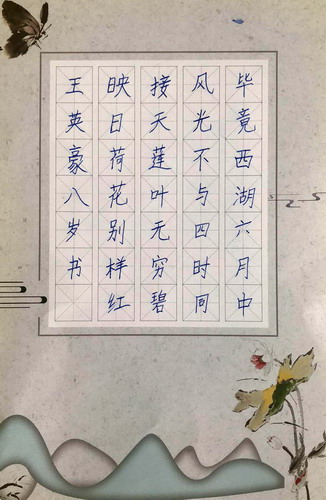 毕竟西湖六月中
风光不与四时同
接天莲叶无穷碧
映日荷花别样红
王英豪八岁书